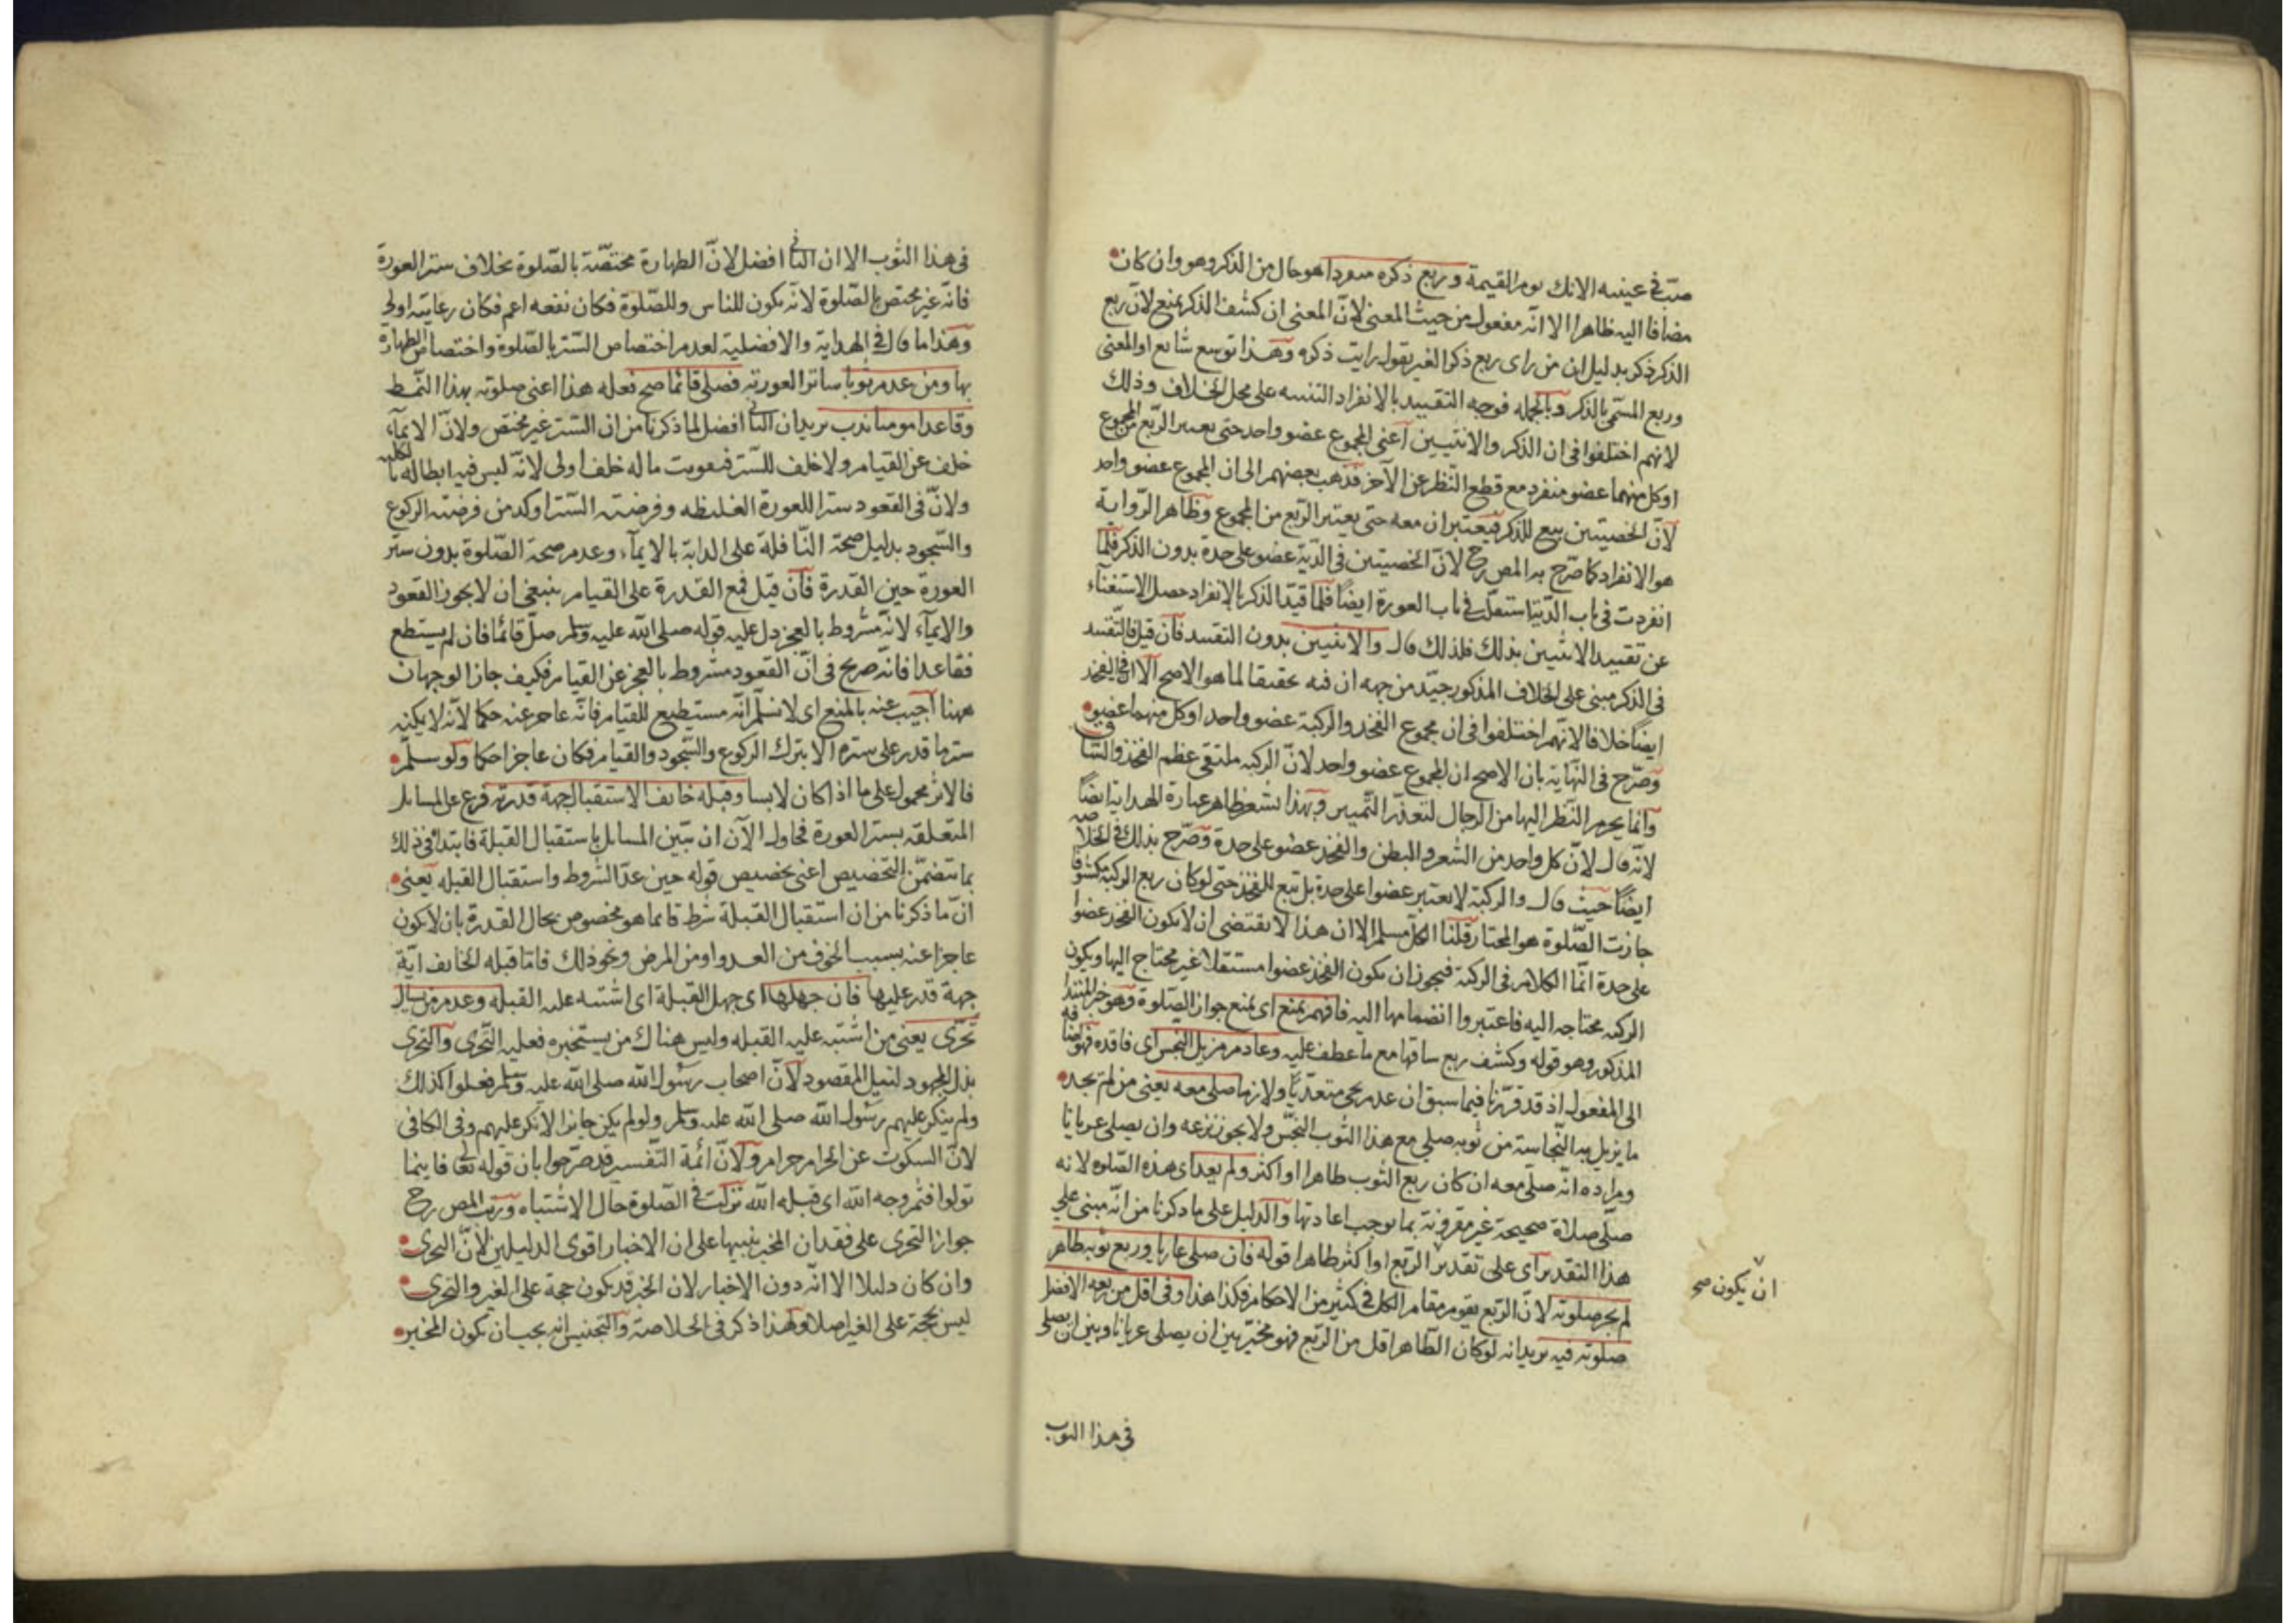 صبّ في عينيه الانك يوم القيمة وربع ذكره منفردا هو حال من الذكر وهو وان كان
مضافا اليه ظاهرا الا انه مفعول من حيث المعنى لانّ المعنى ان كشف الذكر يمنع لانّ ربع
الذكر ذكر بدليل ان من راى ربع ذكر الغير يقول رايت ذكره وهذا توسع شايع او المعنى
وربع المسمّى بالذكر وبالجمله فوجه التقييد بالانفراد التنبيه على محل الخلاف وذلك
لانهم اختلفوا في ان الذكر والانثيين اعنى المجموع عضو واحد حتى يعتبر الرّبع من المجموع
او كل منهما عضو منفرد مع قطع النّظر عن الآخر فذهب بعضهم الى ان المجموع عضو واحد
لانّ الخصيتين تبع للذكر فيعتبران معه حتى يعتبر الرّبع من المجموع وظاهر الرّواية
هو الانفراد كما صرّح به المص رح لانّ الخصيتين في الدّية عضو على حدة بدون الذكر فلما
انفردت في باب الدّية استقلّت في باب العورة ايضًا فلمّا قيّد الذكر بالانفراد حصل الاستغناء
عن تقييد الانثيين بذلك فلذلك قال والانثيين بدون التقييد فان قيل فالتّقييد
في الذكر مبنى على الخلاف المذكور جيّد من جهة ان فيه تحقيقا لما هو الاصح الا ان في الفخذ
ايضًا خلافا لانّهم اختلفوا في ان مجموع الفخذ والركبة عضو واحد او كل منهما عضو
وصرّح في النّهاية بان الاصح ان المجموع عضو واحد لانّ الركبه ملتقى عظم الفخذ والسّاق
وانما يحرم النّظر اليها من الرجال لتعذّر التّمييز وبهذا يشعر ظاهر عبارة الهداية ايضًا
لانّه قال لانّ كل واحد من الشعر والبطن والفخذ عضو على حدة وصرّح بذلك في الخلاصه
ايضًا حيث قال والركبة لا تعتبر عضوا على حدة بل تبع للفخذ حتى لو كان ربع الركبة مكشوفا
جازت الصّلوة هو المختار قلنا الكل مسلم الا ان هذا لا يقتضى ان لا يكون الفخذ عضوا
على حدة انّما الكلام في الركبة فيجوز ان يكون الفخذ عضوا مستقلا غير محتاج اليها ويكون
الركبة محتاجه اليه فاعتبروا انضمامها اليه فافهم يمنع اى يمنع جواز الصّلوة وهو خبر المبتدا
المذكور وهو قوله وكشف ربع ساقها مع ما عطف عليه وعادم مزيل النّجس اى فاقده فهو اضافه
الى المفعول اذ قد قرّرنا فيما سبق ان عدم يجى متعدّيًا ولازما صلى معه يعنى من لم يجد
ما يزيل به النّجاسة من ثوبه صلى مع هذا الثوب النّجس ولا يجوز نزعه وان يصلى عريانا
ومراده انّه صلّى معه ان كان ربع الثوب طاهرا او اكثر ولم يعد اى هذه الصّلوة لانه
صلّى صلاة صحيحة غير مقرونة بما يوجب اعادتها والدليل على ما ذكرنا من انّه مبنى على
هذا التقدير اى على تقدير الرّبع او اكثر طاهرا قوله فان صلى عاريا وربع ثوبه طاهر
لم يجز صلوته لانّ الرّبع يقوم مقام الكل في كثير من الاحكام فكذا هذا وفى اقل من ربعه الافضل
صلوته فيه يريد انه لو كان الطّاهر اقل من الرّبع فهو مخيّر بين ان يصلى عريانا وبين ان يصلى
ان يكون صح
في هذا الثوب
في هذا الثوب الا ان الثانى افضل لانّ الطهارة مختصّة بالصّلوة بخلاف ستر العورة
فانّه غير مختص بالصّلوة لانّه يكون للناس وللصّلوة فكان نفعه اعم فكان رعايته اولى
وهذا ما قال في الهداية والافضلية لعدم اختصاص السّتر بالصّلوة واختصاص الطهارة
بها ومن عدم ثوبا ساترا لعورته فصلى قائما صح فعله هذا اعنى صلوته بهذا النّمط
وقاعدا موميا ندب يريد ان الثانى افضل لما ذكرنا من ان السّتر غير مختص ولانّ الايماء
خلف عن القيام ولا خلف للسّتر فتفويت ما له خلف اولى لانّه ليس فيه ابطاله بالكليه
ولانّ في القعود سترا للعورة الغليظه وفرضيّة السّتر اوكد من فرضيّة الركوع
والسّجود بدليل صحة النّافلة على الدابة بالايماء وعدم صحة الصّلوة بدون ستر
العورة حين القدرة فان قيل فمع القدرة على القيام ينبغى ان لا يجوز القعود
والايماء لانّه مشروط بالعجز دل عليه قوله صلى الله عليه وسلم صلّ قائما فان لم يستطع
فقاعدا فانّه صريح في انّ القعود مشروط بالعجز عن القيام فكيف جاز الوجهان
ههنا اجيب عنه بالمنع اى لا نسلّم انّه مستطيع للقيام فانّه عاجز عنه حكما لانّه لا يمكنه
ستر ما قدر على ستره الا بترك الركوع والسّجود والقيام فكان عاجزا حكما ولو سلّم
فالاثر محمول على ما اذا كان لابسا وقبلة خائف الاستقبال جهة قدرته فرع على المسائل
المتعلقة بستر العورة فحاول الآن ان يبيّن المسائل باستقبال القبلة فابتدأ في ذلك
بما يتضمّن التخصيص اعنى تخصيص قوله حين عدّ الشروط واستقبال القبله يعنى
انّ ما ذكرنا من ان استقبال القبلة شرط فانما هو مخصوص بحال القدرة بان لا يكون
عاجزا عنه بسبب الخوف من العدو او من المرض ونحو ذلك فامّا قبله الخائف اية
جهة قدر عليها فان جهلها اى جهل القبلة اى اشتبه عليه القبله وعدم من يسال
تحرّى يعنى من اشتبه عليه القبله وليس هناك من يستخبره فعليه التّحرى والتحرى
بذل المجهود لنيل المقصود لانّ اصحاب رسول الله صلى الله عليه وسلم فعلوا كذلك
ولم ينكر عليهم رسول الله صلى الله عليه وسلم ولو لم يكن جايزا لانكر عليهم وفى الكافى
لانّ السكوت عن الحرام حرام ولانّ ائمة التّفسير قد صرّحوا بان قوله تعا فاينما
تولوا فثم وجه الله اى قبلة الله نزلت في الصّلوة حال الاشتباه ورتّب المص رح
جواز التحرى على فقدان المخبر تنبيها على ان الاخبار اقوى الدليلين لانّ التحرى
وان كان دليلا الا انّه دون الاخبار لان الخبر قد يكون حجة على الغير والتحرى
ليس بحجة على الغير اصلا ولهذا ذكر في الخلاصة والتجنيس انه يجب ان يكون المخبر